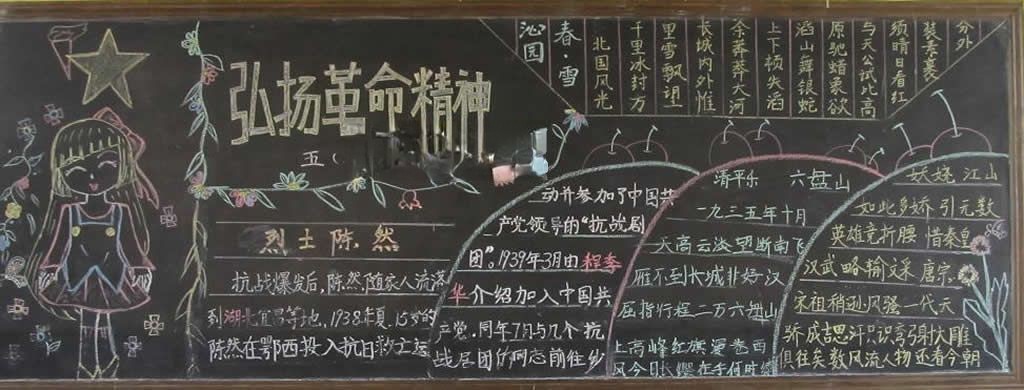 弘扬革命精神
五（
烈士陈然
抗战爆发后，陈然随家人流落
到湖北宜昌等地，1938年夏，15岁的
陈然在鄂西投入抗日救亡运
动并参加了中国共
产党领导的“抗战剧
团”。1939年3月由程季
华介绍加入中国共
产党。同年7月与几个抗
战居团的同志前往乡
清平乐 六盘山
一九三五年十月
天高云淡 望断南飞
雁不到长城非好汉
屈指行程二万六盘山
上高峰红旗漫卷西
风今日长缨在手何时缚
沁园
春·雪
北国风光
千里冰封万
里雪飘望
长城内外惟
余莽莽大河
上下顿失滔
滔山舞银蛇
原驰蜡象欲
与天公试比高
须晴日看红
装素裹
分外
妖娆 江山
如此多娇 引无数
英雄竞折腰 惜秦皇
汉武略输文采 唐宗
宋祖稍逊风骚 一代天
骄成吉思汗只识弯弓射大雕
俱往矣数风流人物还看今朝